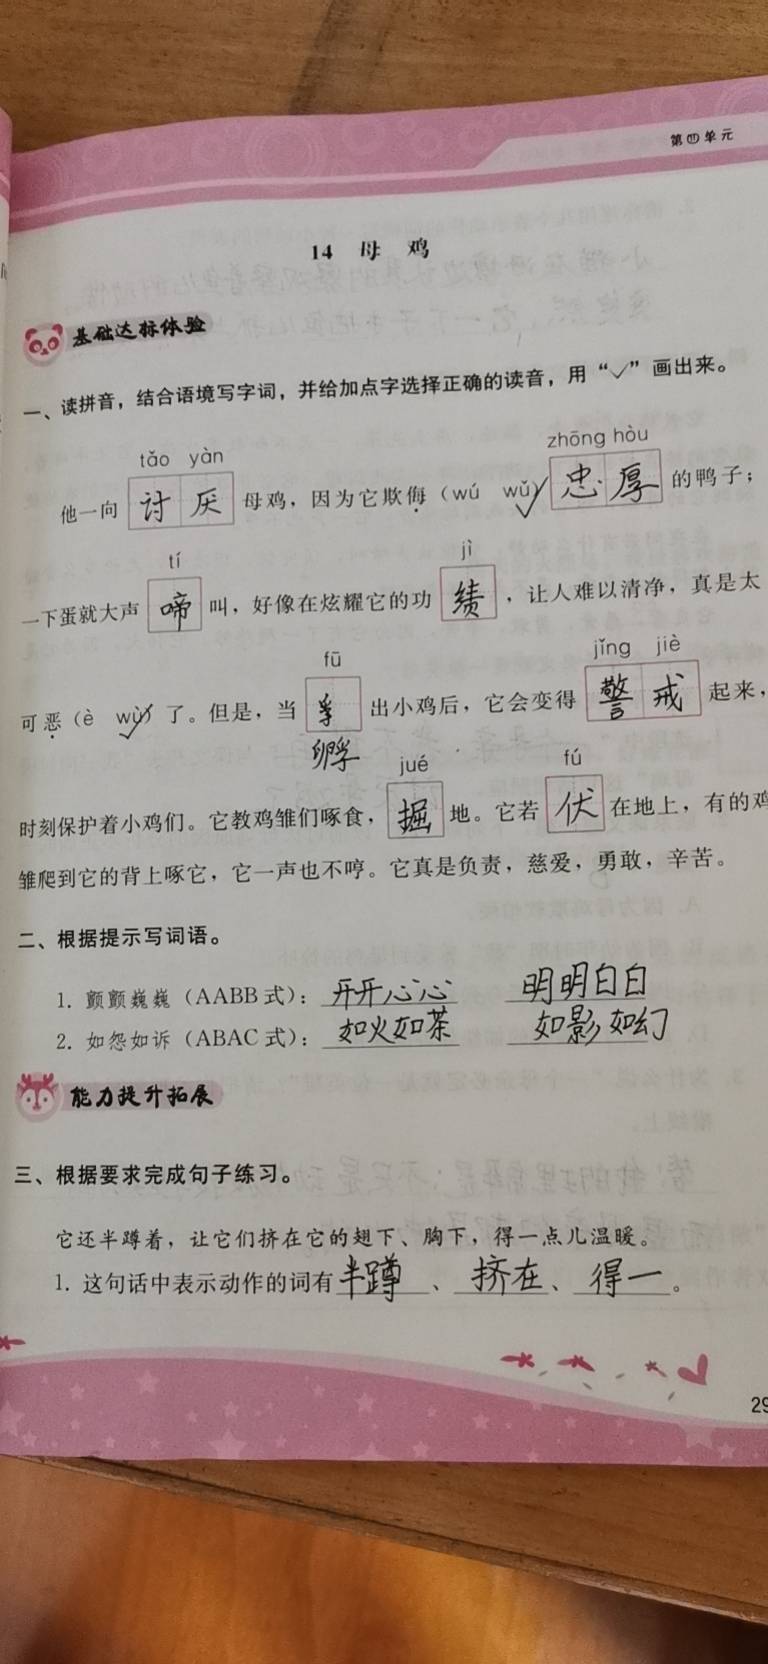 第四单元
14 母 鸡
基础达标体验
一、读拼音，结合语境写字词，并给加点字选择正确的读音，用“√”画出来。
tǎo yàn zhōng hòu
他一向 讨厌 母鸡，因为它欺侮（wú wǔ√）忠厚 的鸭子；
tí jì
一下蛋就大声 啼 叫，好像在炫耀它的功 绩 ，让人难以清净，真是太
fū jǐng jiè
可恶（è wù√）了。但是，当 孚 出小鸡后，它会变得 警戒 起来，
孵
jué fú
时刻保护着小鸡们。它教鸡雏们啄食，掘 地。它若 伏 在地上，有的鸡
雏爬到它的背上啄它，它一声也不哼。它真是负责，慈爱，勇敢，辛苦。
二、根据提示写词语。
1. 颤颤巍巍（AABB 式）：开开心心 明明白白
2. 如怨如诉（ABAC 式）：如火如荼 如影如幻
能力提升拓展
三、根据要求完成句子练习。
它还半蹲着，让它们挤在它的翅下、胸下，得一点儿温暖。
1. 这句话中表示动作的词有 半蹲 、 挤在 、 得一 。
29